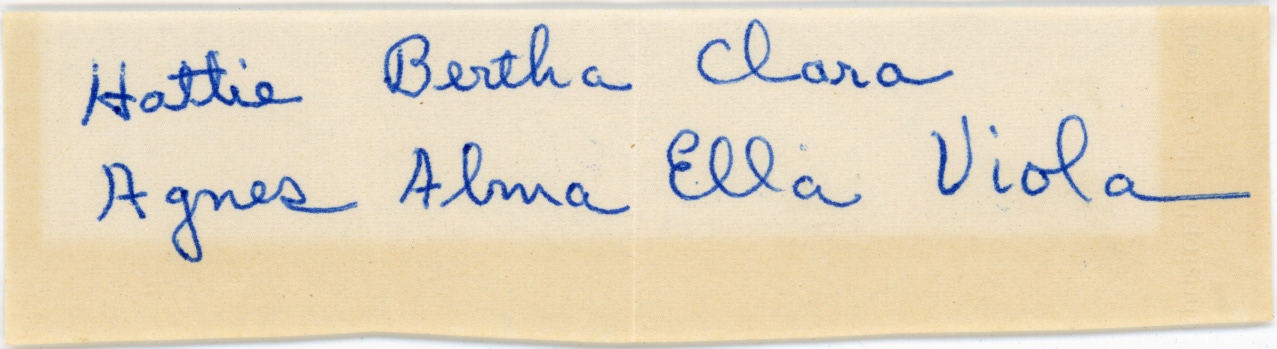 Hattie Bertha Clara
Agnes Alma Ella Viola